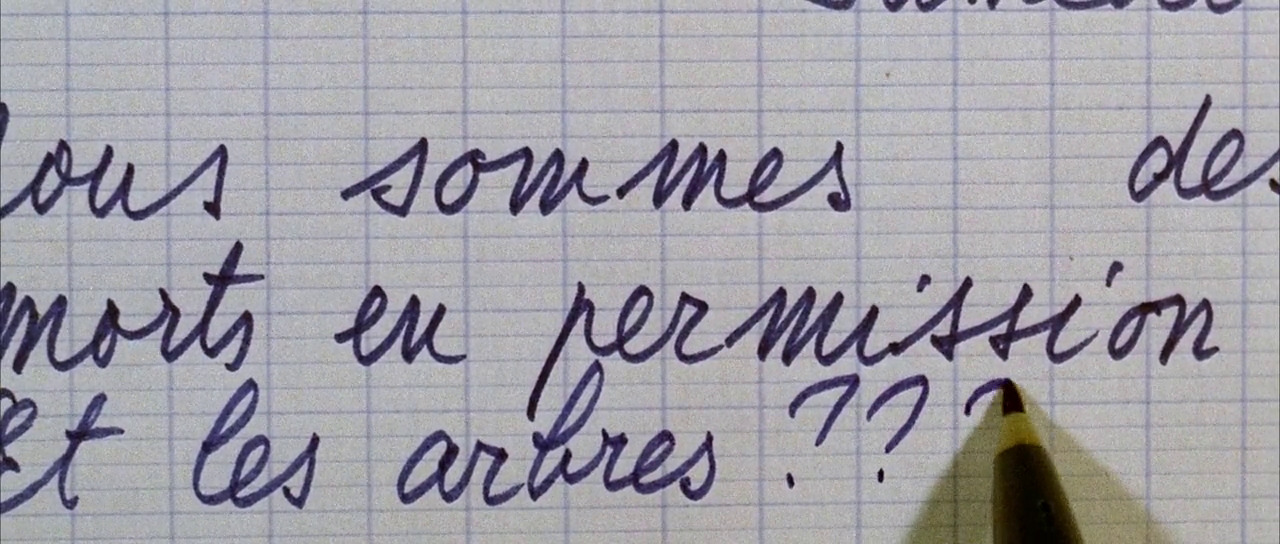 ous sommes des
morts en permission
Et les arbres ???